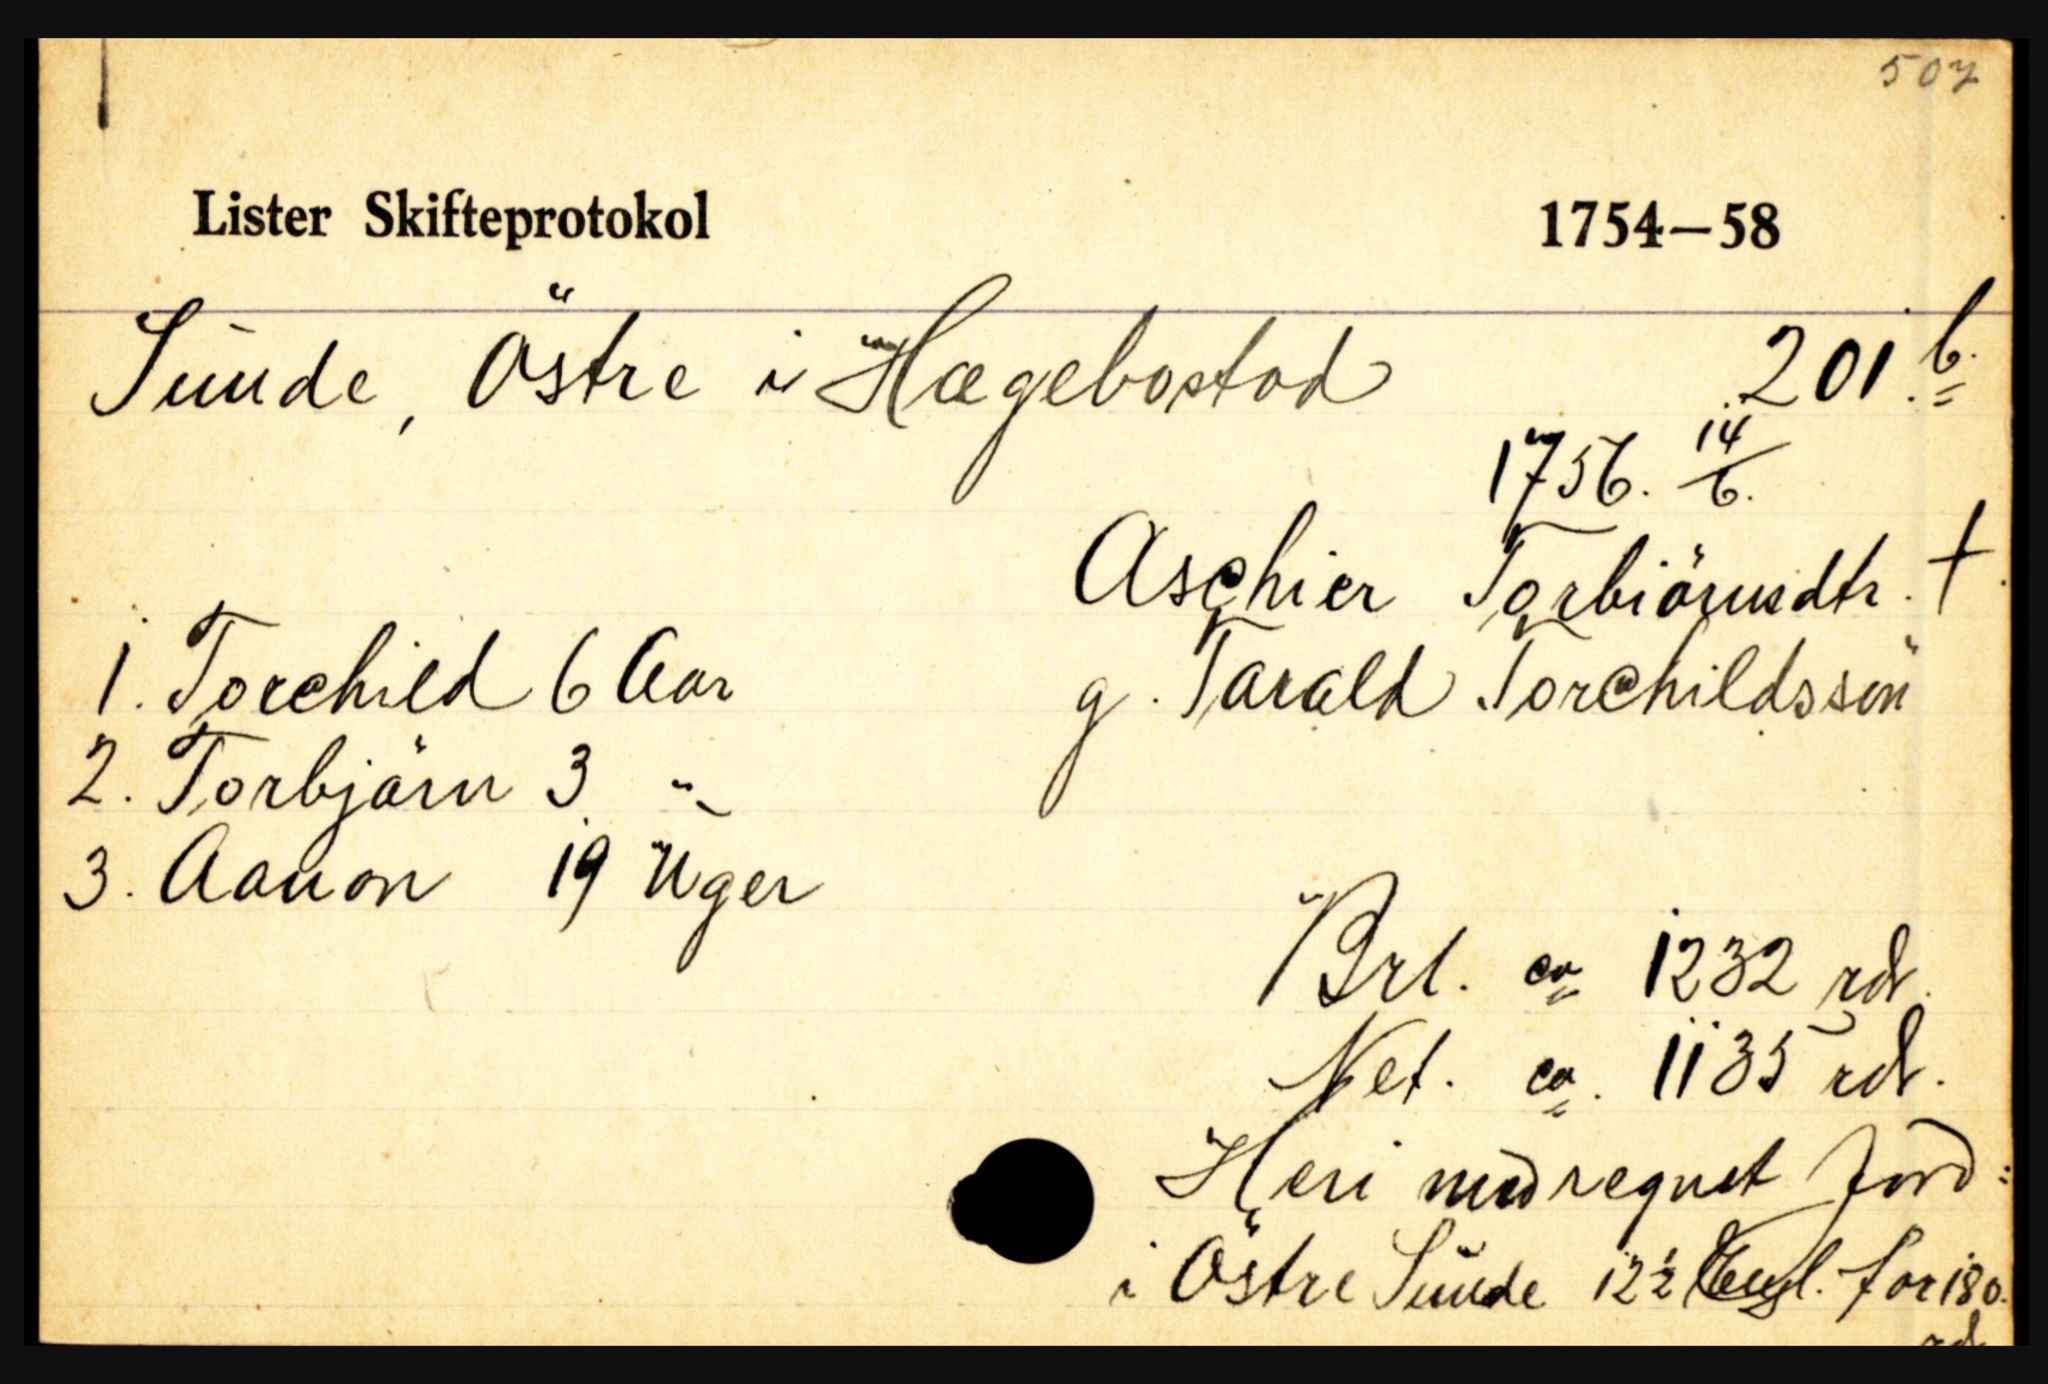 507
Lister Skifteprotokol 1754–58
Sunde, Östre i Hægebostad 201 b.
1756. 14/6.
Aschier Torbiörnsdtr. †
1. Torchild 6 Aar g. Tarald Torchildssön
2. Torbjörn 3 "
3. Aanon 19 Uger
Brt. ca 1232 rdr.
Net. ca. 1135 rdr.
Heri medregnet Jord:
i Östre Sunde 12½ Engl. for 180.
rd